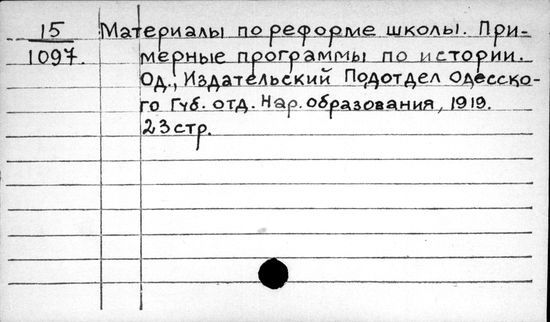 15 Материалы по реформе школы. При-
1097. мерные программы по истории.
Од., Издательский Подотдел Одесско-
го Губ. отд. Нар. образования, 1919.
23 стр.